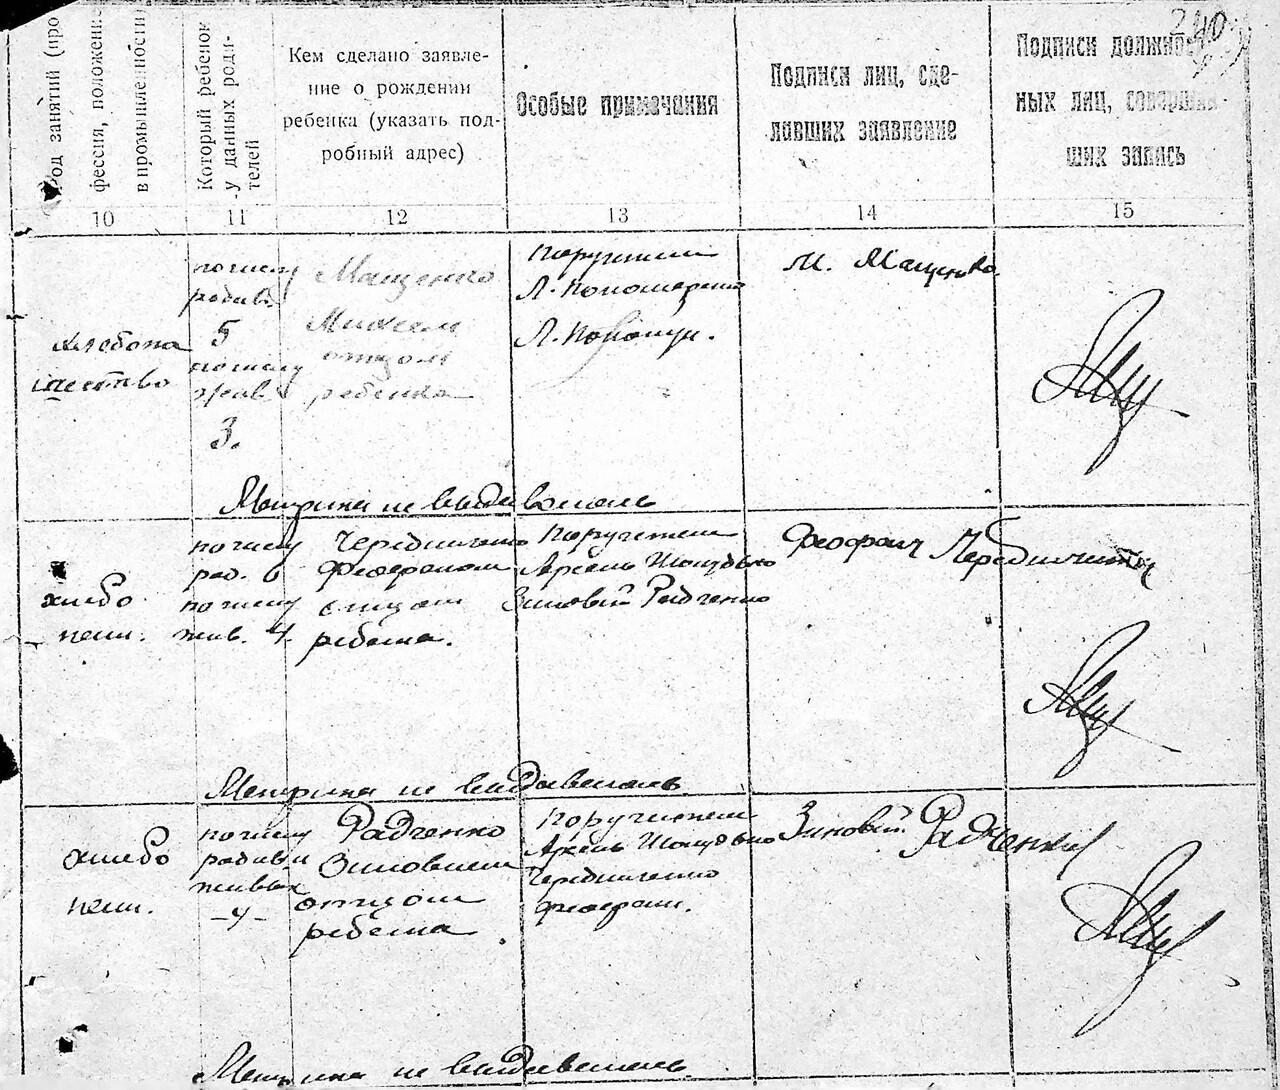 240
Род занятий (про
фессия, положени
в промышленности
Который ребенок
у данных роди-
телей
Кем сделано заявле-
ние о рождении
ребенка (указать под-
робный адрес)
Особые примечания
Подписи лиц, сде-
лавших заявление
Подписи должност-
ных лиц, совершив-
ших запись
10 11 12 13 14 15
хлебопа
шество
по числу
родив.
5
по числу
жив.
3.
Мащенко
Михеем
отцом
ребенка
Поручители
Л. Пономаренко
М. Мащенко
Метрика не выдавалась
хлебо
паш.
по числу
род. 6
по числу
жив. 4.
Чередниченко
Феофаном
отцом
ребенка.
Поручители
Зиновий Радченко
Феофан Чередниченко
Метрика не выдавалась.
хлебо
паш.
по числу
родивш
живых
-4-
Радченко
Зиновием
отцом
ребенка
Поручители
Чередниченко
Феофан.
Зиновий Радченко
Метрика не выдавалась.